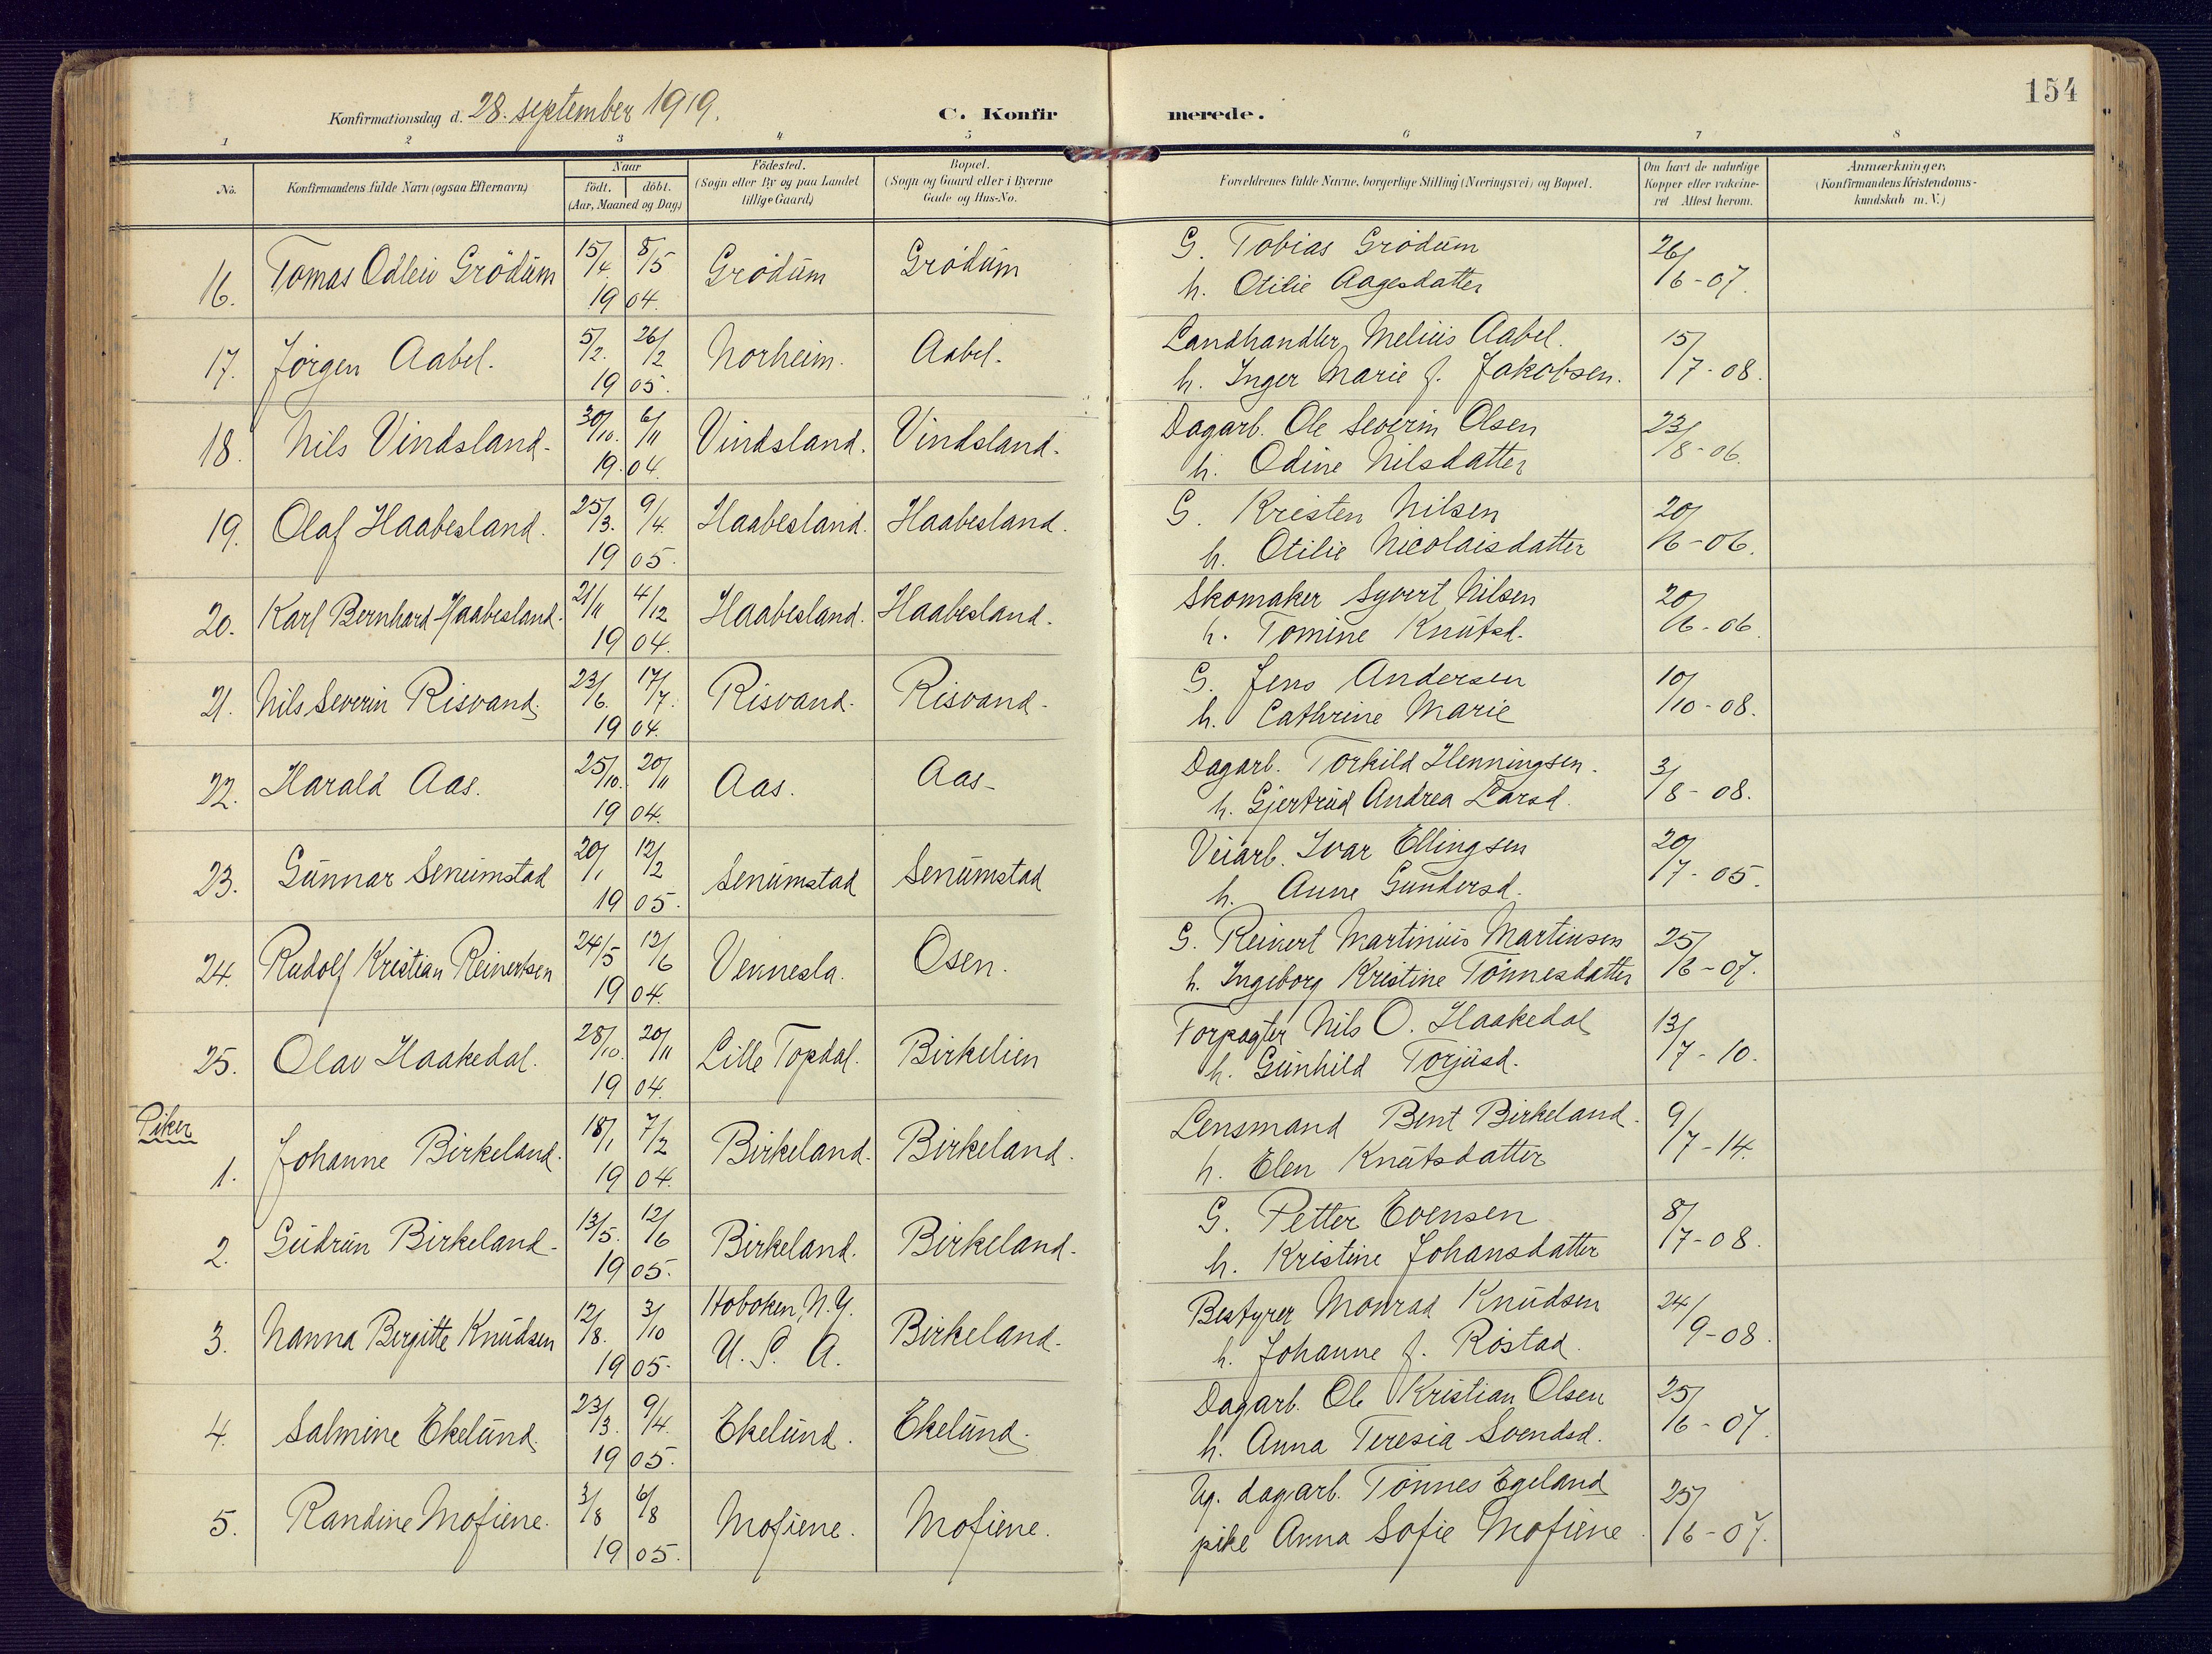 154
Konfirmationsdag d. 28. september 1919.
C. Konfirmerede.
1 2 3 4 5 6 7 8
No.
Konfirmandens fulde Navn (ogsaa Efternavn)
Naar
födt. döbt.
(Aar, Maaned og Dag)
Födested.
(Sogn eller By og paa Landet
tillige Gaard)
Bopæl.
(Sogn og Gaard eller i Byerne
Gade og Hus-No.
Forældrenes fulde Navne, borgerlige Stilling (Næringsvei) og Bopæl.
Om havt de naturlige
Kopper eller vakcine-
ret Attest herom.
Anmærkninger.
(Konfirmandens Kristendoms-
kundskab m. V.)
16. Tomas Odleiv Grödum 15/4. 8/5 1904. Grödum Grödum G. Tobias Grödum 26/6-07.
h. Otilie Aagesdatter
17. Jörgen Aabel. 5/2. 26/2 1905. Norheim. Aabel. Landhandler Melius Aabel. 15/7-08.
h. Inger Marie f. Jakobsen.
18. Nils Vindsland. 30/10. 6/11 19.04. Vindsland. Vindsland. Dagarb. Ole Severin Olsen 23/8-06.
h. Odine Nilsdatter
19. Olaf Haabesland. 25/3. 9/4. 1905. Haabesland. Haabesland. G. Kristen Nilsen 20/6-06.
h. Otilie Nicolaisdatter
20. Karl Bernhard Haabesland. 21/11 4/12 1904. Haabesland. Haabesland. Skomaker Syvert Nilsen 20/6-06.
h. Tomine Knutsd.
21. Nils Severin Risvand. 23/6. 17/7. 1904. Risvand. Risvand. G. Jens Andersen 10/10-08.
h. Cathrine Marie
22. Harald Aas. 25/10. 20/11 1904. Aas. Aas. Dagarb. Torkild Henningsen. 3/8-08.
h. Gjertrud Andrea Larsd.
23. Gunnar Senumstad 20/1 12/2 1905. Senumstad Senumstad Veiarb. Ivar Ellingsen 20/7-05.
h. Anne Gundersd.
24. Rudolf Kristian Reinertsen 24/5 12/6 1904. Vennesla. Osen. G. Reinert Martinius Martinsen 25/6-07.
h. Ingeborg Kristine Tönnesdatter
25. Olav Haakedal. 28/10. 20/11 1904. Lille Topdal. Birkelien Forpagter Nils O. Haakedal 13/7-10.
h. Gunhild Torjusd.
Piker
1. Johanne Birkeland. 18/1 7/2 1904. Birkeland. Birkeland. Lensmand Bent Birkeland. 9/7-14.
h. Elen Knutsdatter
2. Gudrun Birkeland. 13/5. 12/6 1905. Birkeland. Birkeland. G. Petter Evensen 8/7-08.
h. Kristine Johansdatter
3. Nanna Birgitte Knudsen 12/8. 3/10 1905. Hoboken, N.Y. U. S. A. Birkeland. Bestyrer Monrad Knudsen 24/9-08.
h. Johanne f. Röstad.
4. Salmine Ekelund. 23/3. 9/4. 1905. Ekelund. Ekelund. Dagarb. Ole Kristian Olsen 25/6-07.
h. Anna Teresia Svendsd.
5. Randine Mofiene. 3/8 6/8 1905. Mofiene. Mofiene. Ug. dagarb. Tönnes Egeland 25/6-07.
pike Anna Sofie Mofiene.